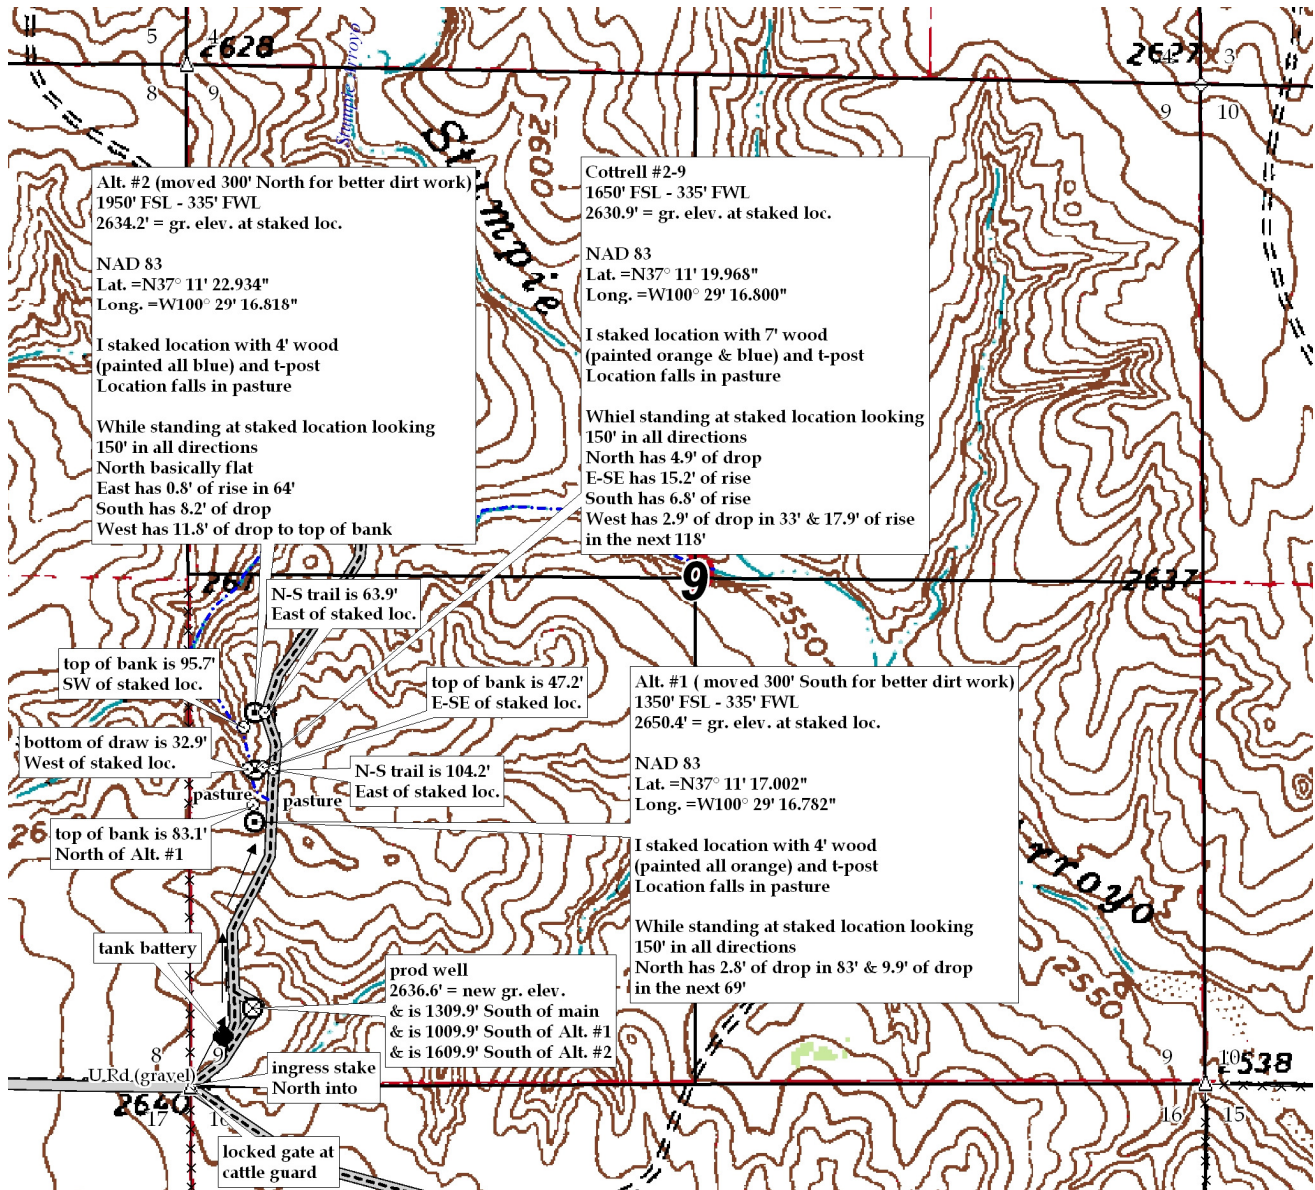 5
4
2628
Stumpie Arroyo
2627
4
3
8
9
9
10
Stumpie
2600
Alt. #2 (moved 300' North for better dirt work)
1950' FSL - 335' FWL
2634.2' = gr. elev. at staked loc.
NAD 83
Lat. =N37° 11' 22.934"
Long. =W100° 29' 16.818"
I staked location with 4' wood
(painted all blue) and t-post
Location falls in pasture
While standing at staked location looking
150' in all directions
North basically flat
East has 0.8' of rise in 64'
South has 8.2' of drop
West has 11.8' of drop to top of bank
Cottrell #2-9
1650' FSL - 335' FWL
2630.9' = gr. elev. at staked loc.
NAD 83
Lat. =N37° 11' 19.968"
Long. =W100° 29' 16.800"
I staked location with 7' wood
(painted orange & blue) and t-post
Location falls in pasture
Whiel standing at staked location looking
150' in all directions
North has 4.9' of drop
E-SE has 15.2' of rise
South has 6.8' of rise
West has 2.9' of drop in 33' & 17.9' of rise
in the next 118'
9
2637
2550
N-S trail is 63.9'
East of staked loc.
top of bank is 95.7'
SW of staked loc.
top of bank is 47.2'
E-SE of staked loc.
bottom of draw is 32.9'
West of staked loc.
N-S trail is 104.2'
East of staked loc.
pasture
pasture
top of bank is 83.1'
North of Alt. #1
Alt. #1 ( moved 300' South for better dirt work)
1350' FSL - 335' FWL
2650.4' = gr. elev. at staked loc.
NAD 83
Lat. =N37° 11' 17.002"
Long. =W100° 29' 16.782"
I staked location with 4' wood
(painted all orange) and t-post
Location falls in pasture
While standing at staked location looking
150' in all directions
North has 2.8' of drop in 83' & 9.9' of drop
in the next 69'
rroyo
2550
tank battery
prod well
2636.6' = new gr. elev.
& is 1309.9' South of main
& is 1009.9' South of Alt. #1
& is 1609.9' South of Alt. #2
8
9
9
10
2538
U Rd (gravel)
ingress stake
North into
2640
17
16
16
15
locked gate at
cattle guard